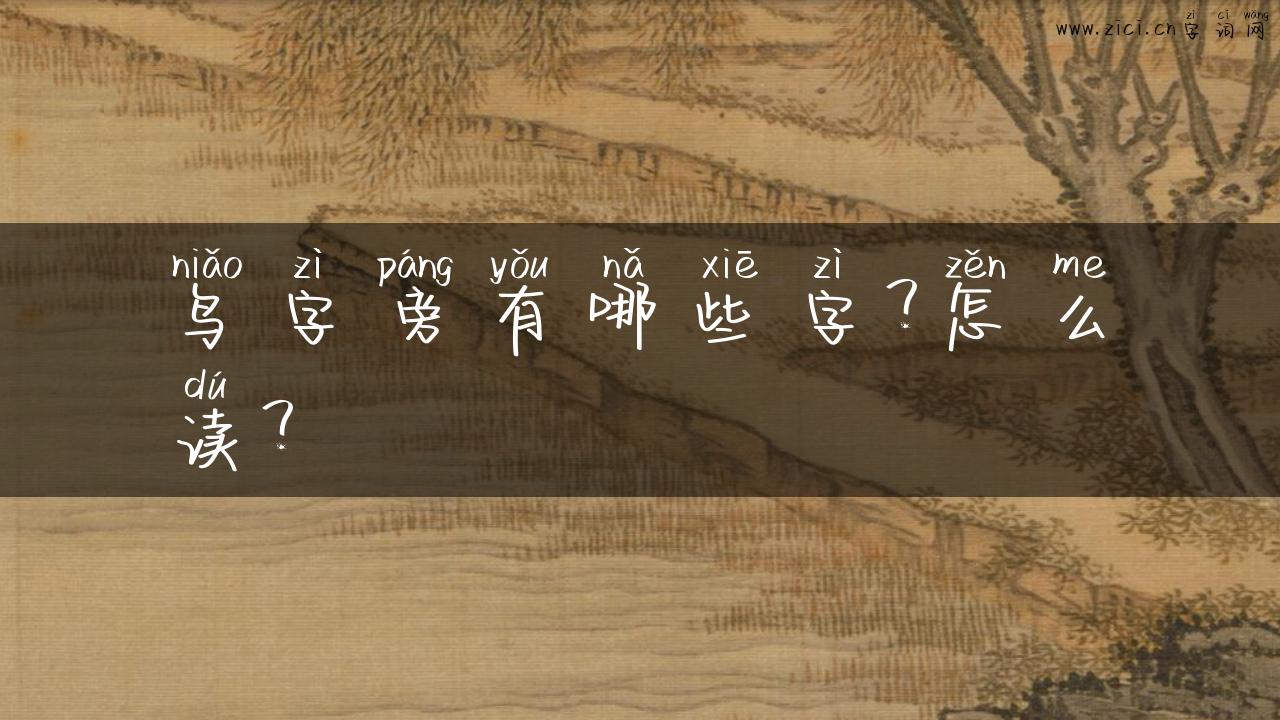 www.zici.cn字词网
zì cí wǎng
niǎo zì páng yǒu nǎ xiē zì zěn me
鸟字旁有哪些字?怎么
dú
读?